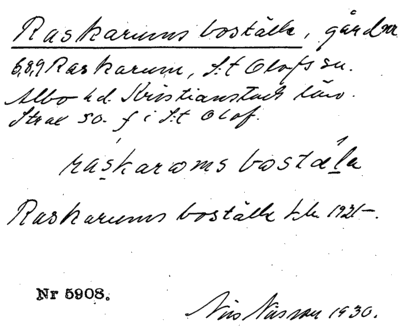 Raskarums boställe, gård nr
6,8,9 Raskarum, S:t Olofs sn.
Albo hd. Kristianstads län.
Strax so. f i S:t Olof.
ráskaroms bostäla
Raskarums boställe 1921-.
Nr 5908.
Nils Nilsson 1930.